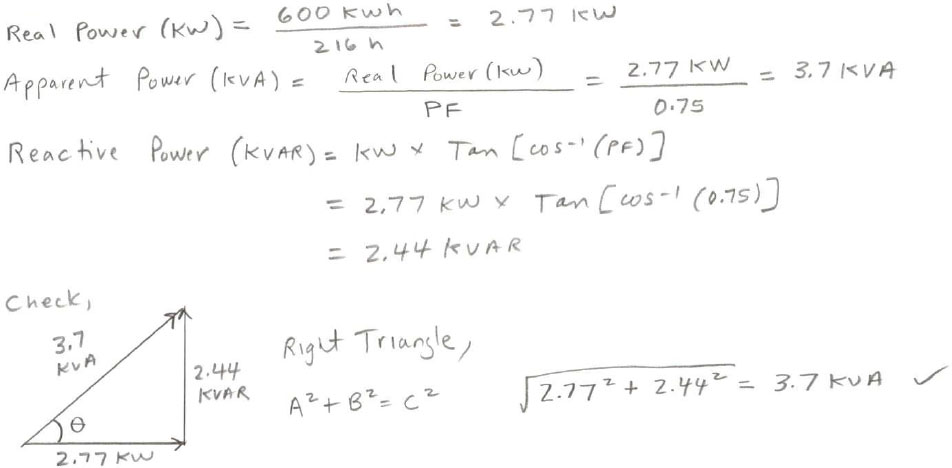 Real Power (KW) = 600 KWh / 216 h = 2.77 KW
Apparent Power (KVA) = Real Power (KW) / PF = 2.77 KW / 0.75 = 3.7 KVA
Reactive Power (KVAR) = KW x Tan [cos-¹ (PF)]
= 2.77 KW x Tan [cos-1 (0.75)]
= 2.44 KVAR
Check,
3.7 KVA
2.44 KVAR
θ
2.77 KW
Right Triangle,
A² + B² = C²
√2.77² + 2.44² = 3.7 KVA ✓